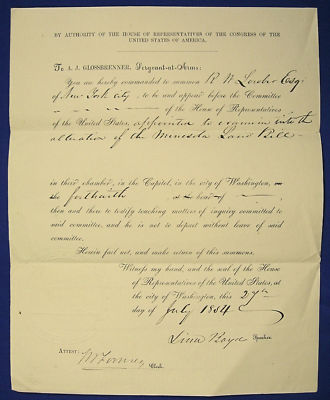 BY AUTHORITY OF THE HOUSE OF REPRESENTATIVES OF THE CONGRESS OF THE
UNITED STATES OF AMERICA.
To A. J. GLOSSBRENNER, Sergeant-at-Arms:
You are hereby commanded to summon R W Esq:
of New York city, to be and appear before the Committee
of the House of Representatives
of the United States, appointed to examine into the
alteration of the Minesota Land Bill
in their chamber, in the Capitol, in the city of Washington, on
the forthwith at the hour of
then and there to testify touching matters of inquiry committed to
said committee, and he is not to depart without leave of said
committee.
Herein fail not, and make return of this summons.
Witness my hand, and the seal of the House
of Representatives of the United States, at
the city of Washington, this 27th
day of July 1854
Linn Boyd Speaker.
ATTEST:
Clerk.